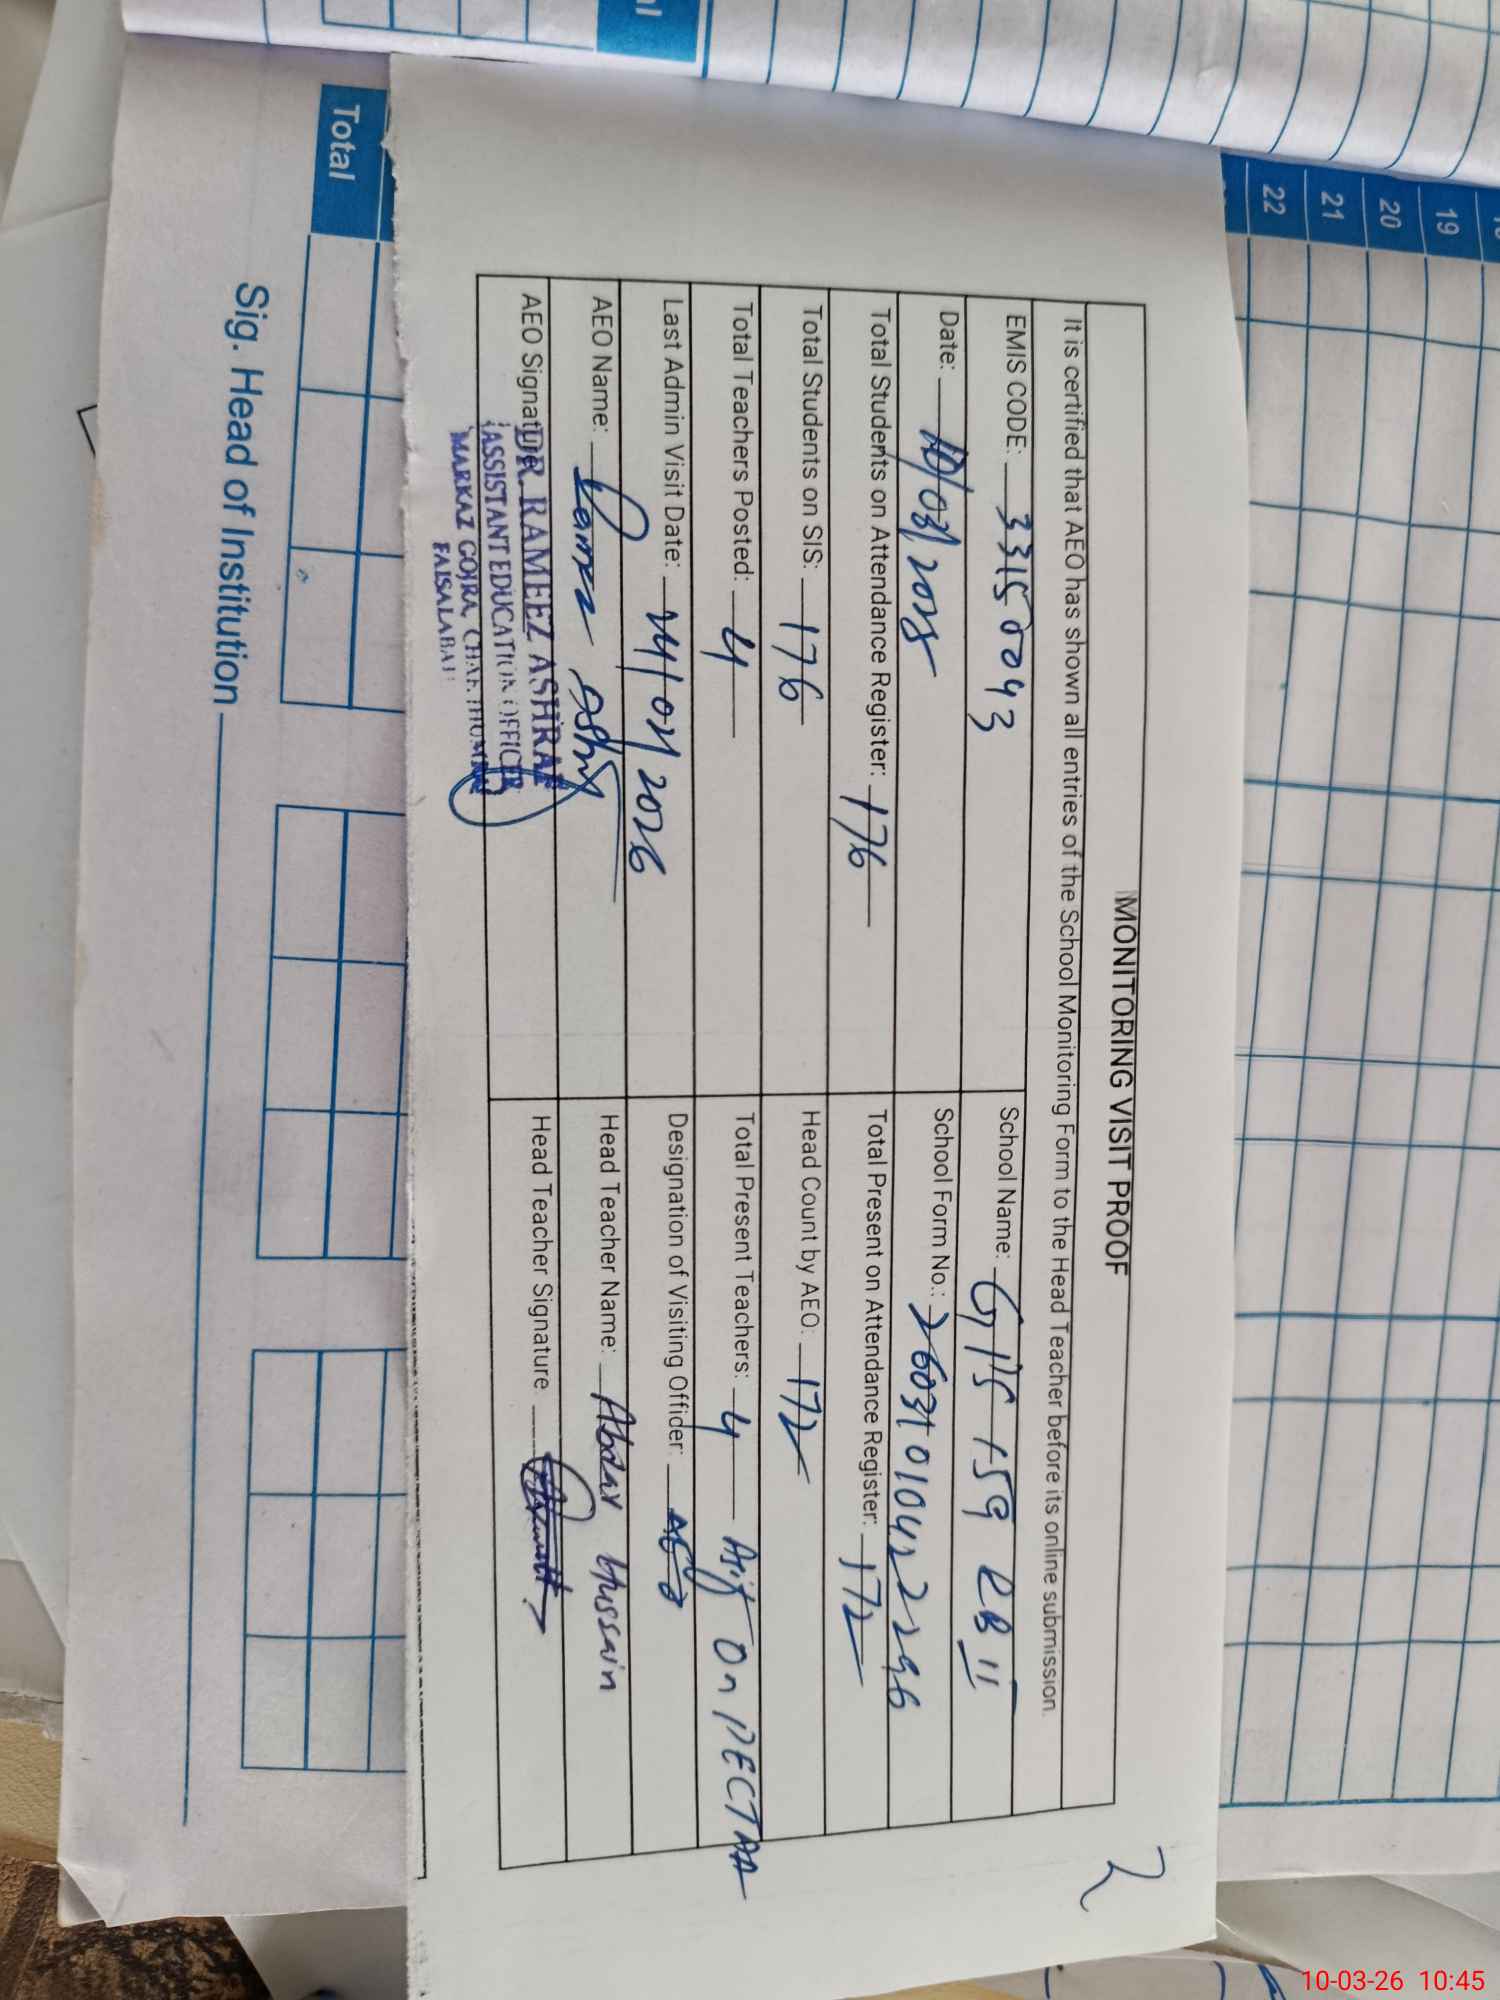 MONITORING VISIT PROOF
It is certified that AEO has shown all entries of the School Monitoring Form to the Head Teacher before its online submission.
EMIS CODE: 33150043
School Name: GPS 159 RB II
Date: 10/03/2026
School Form No.: 2603101042296
Total Students on Attendance Register: 176
Total Present on Attendance Register: 172
Total Students on SIS: 176
Head Count by AEO: 172
Total Teachers Posted: 4
Total Present Teachers: 4 Asif On PECTAA
Last Admin Visit Date: 2026
Designation of Visiting Offider: AEO
AEO Name: Rameez Ashraf
Head Teacher Name: Abdar Hussain
AEO Signature
DR. RAMEEZ ASHRAF
ASSISTANT EDUCATION OFFICER
MARKAZ GOJRA, CHAK JHUMRA
FAISALABAD
Head Teacher Signature
2
Total
Sig. Head of Institution
19
20
21
22
10-03-26 10:45